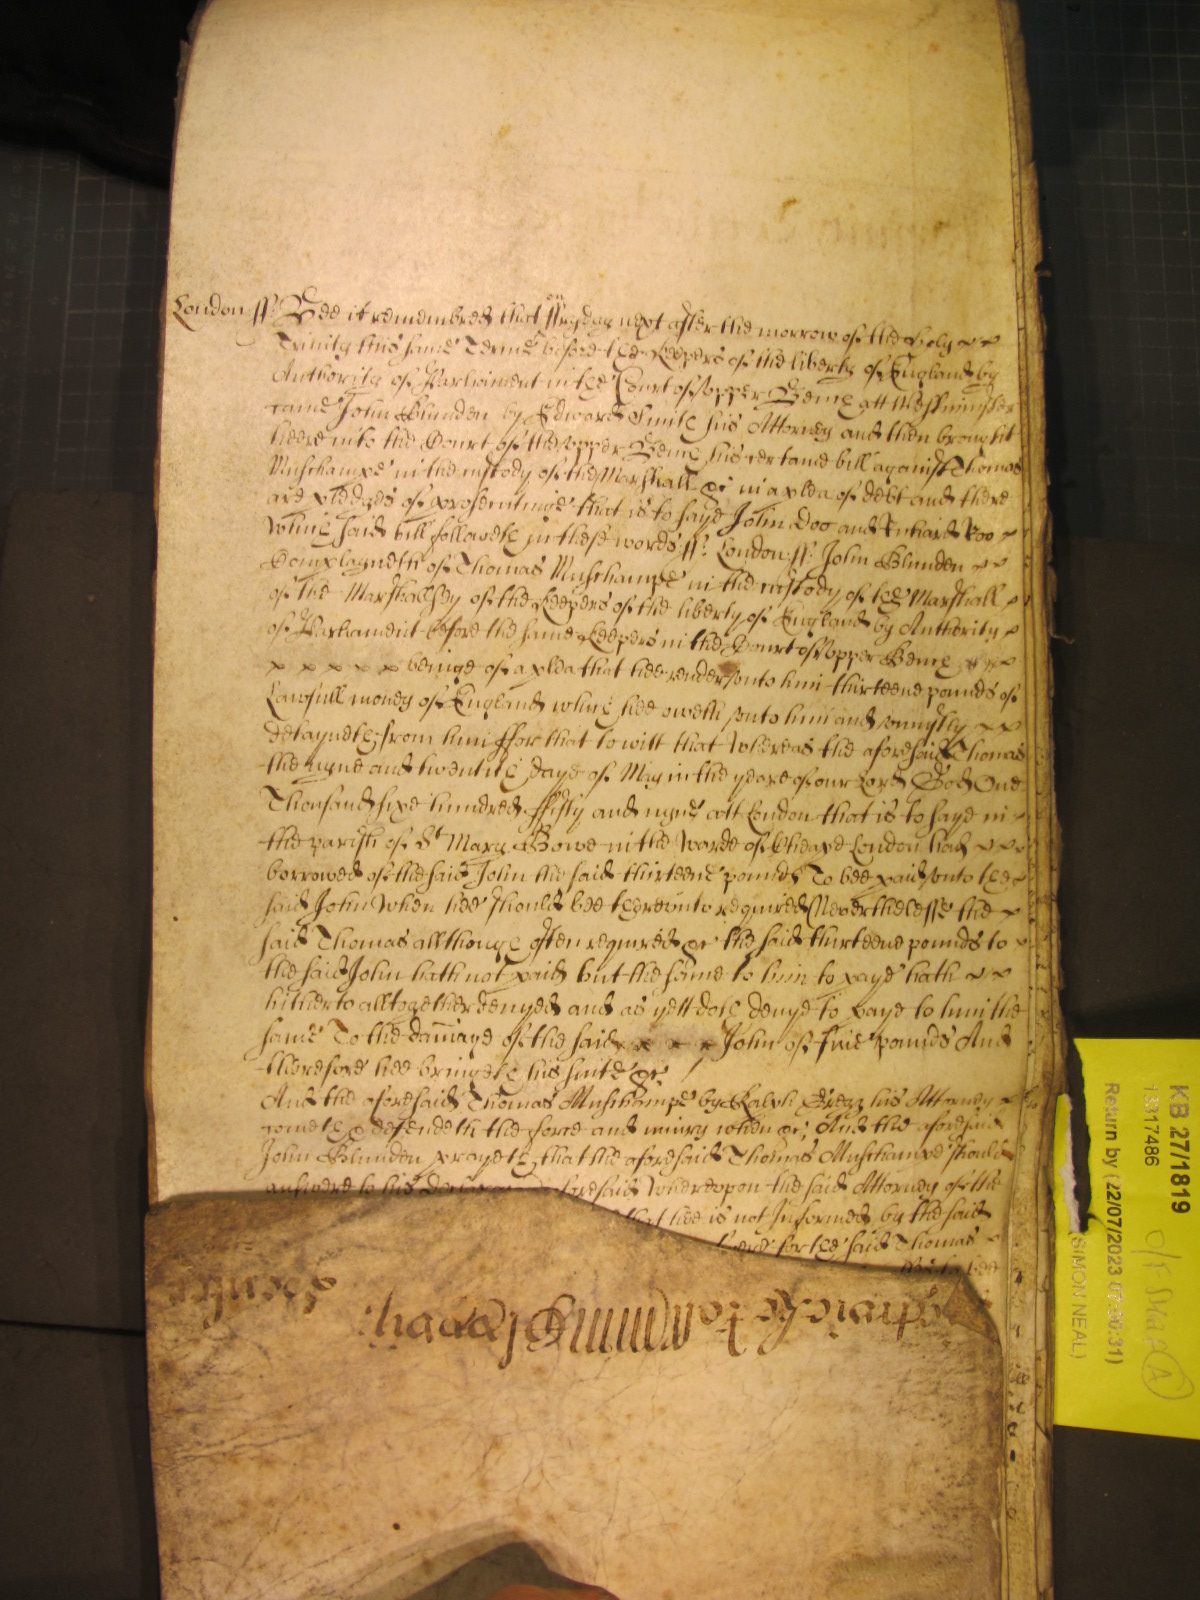 London ss Bee it remembred that ffryday next after the morrow of the holy
Trinity this same Terme before the Keepers of the liberty of England by
Authority of Parliament in the Court of Vpper Bench att Westminster
came John Blunden by Edward Smith his Attorney and then brought
heere into the Court of the Vpper Bench his certaine bill against Thomas
Muschampe in the custody of the Marshall &c in a plea of debt and there
are pledges of prosecutinge that is to saye John Doo and Richard Roo
Which said bill followeth in these words ss London ss John Blunden
Complayneth of Thomas Muschampe in the custody of the Marshall
of the Marshallsey of the Keepers of the liberty of England by Authority
of Parliament before the same Keepers in the Court of Vpper Bench
x x x x x beinge of a plea that hee render vnto him thirteene pounds of
Lawfull money of England which hee oweth vnto him and vniustly
detayneth from him ffor that to witt that Whereas the aforesaid Thomas
the nyne and twentith daye of May in the yeare of our Lord God One
Thousand sixe hundred ffifty and nyne att London that is to saye in
the parish of St Mary Bowe in the Warde of Cheape London had
borrowed of the said John the said thirteene pounds To bee paid vnto the
said John When hee should bee therevnto required Neverthelesse the
said Thomas allthough often required &c the said thirteene pounds to
the said John hath not paid but the same to him to paye hath
hitherto alltogether denyed and as yett doth denye to paye to him the
same To the damage of the said x x x John of five pounds And
therefore hee bringeth his suite &c
And the aforesaid Thomas Muschampe by Ralph Gregg his Attorney
cometh & defendeth the force and iniury when &c And the aforesaid
John Blunden prayeth that the aforesaid Thomas Muschampe should
answere to his aforesaid Wherevpon the said Attorney of the
that hee is not Informed by the said
for the said Thomas
KB 27/1819
13317486
Return by (22/07/2023 07:00:31)
(SIMON NEAL)
A